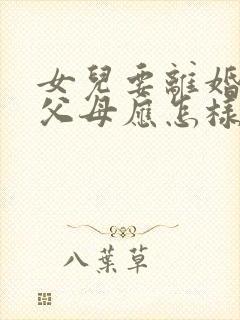 女兒要離婚
父母應怎樣
八葉草